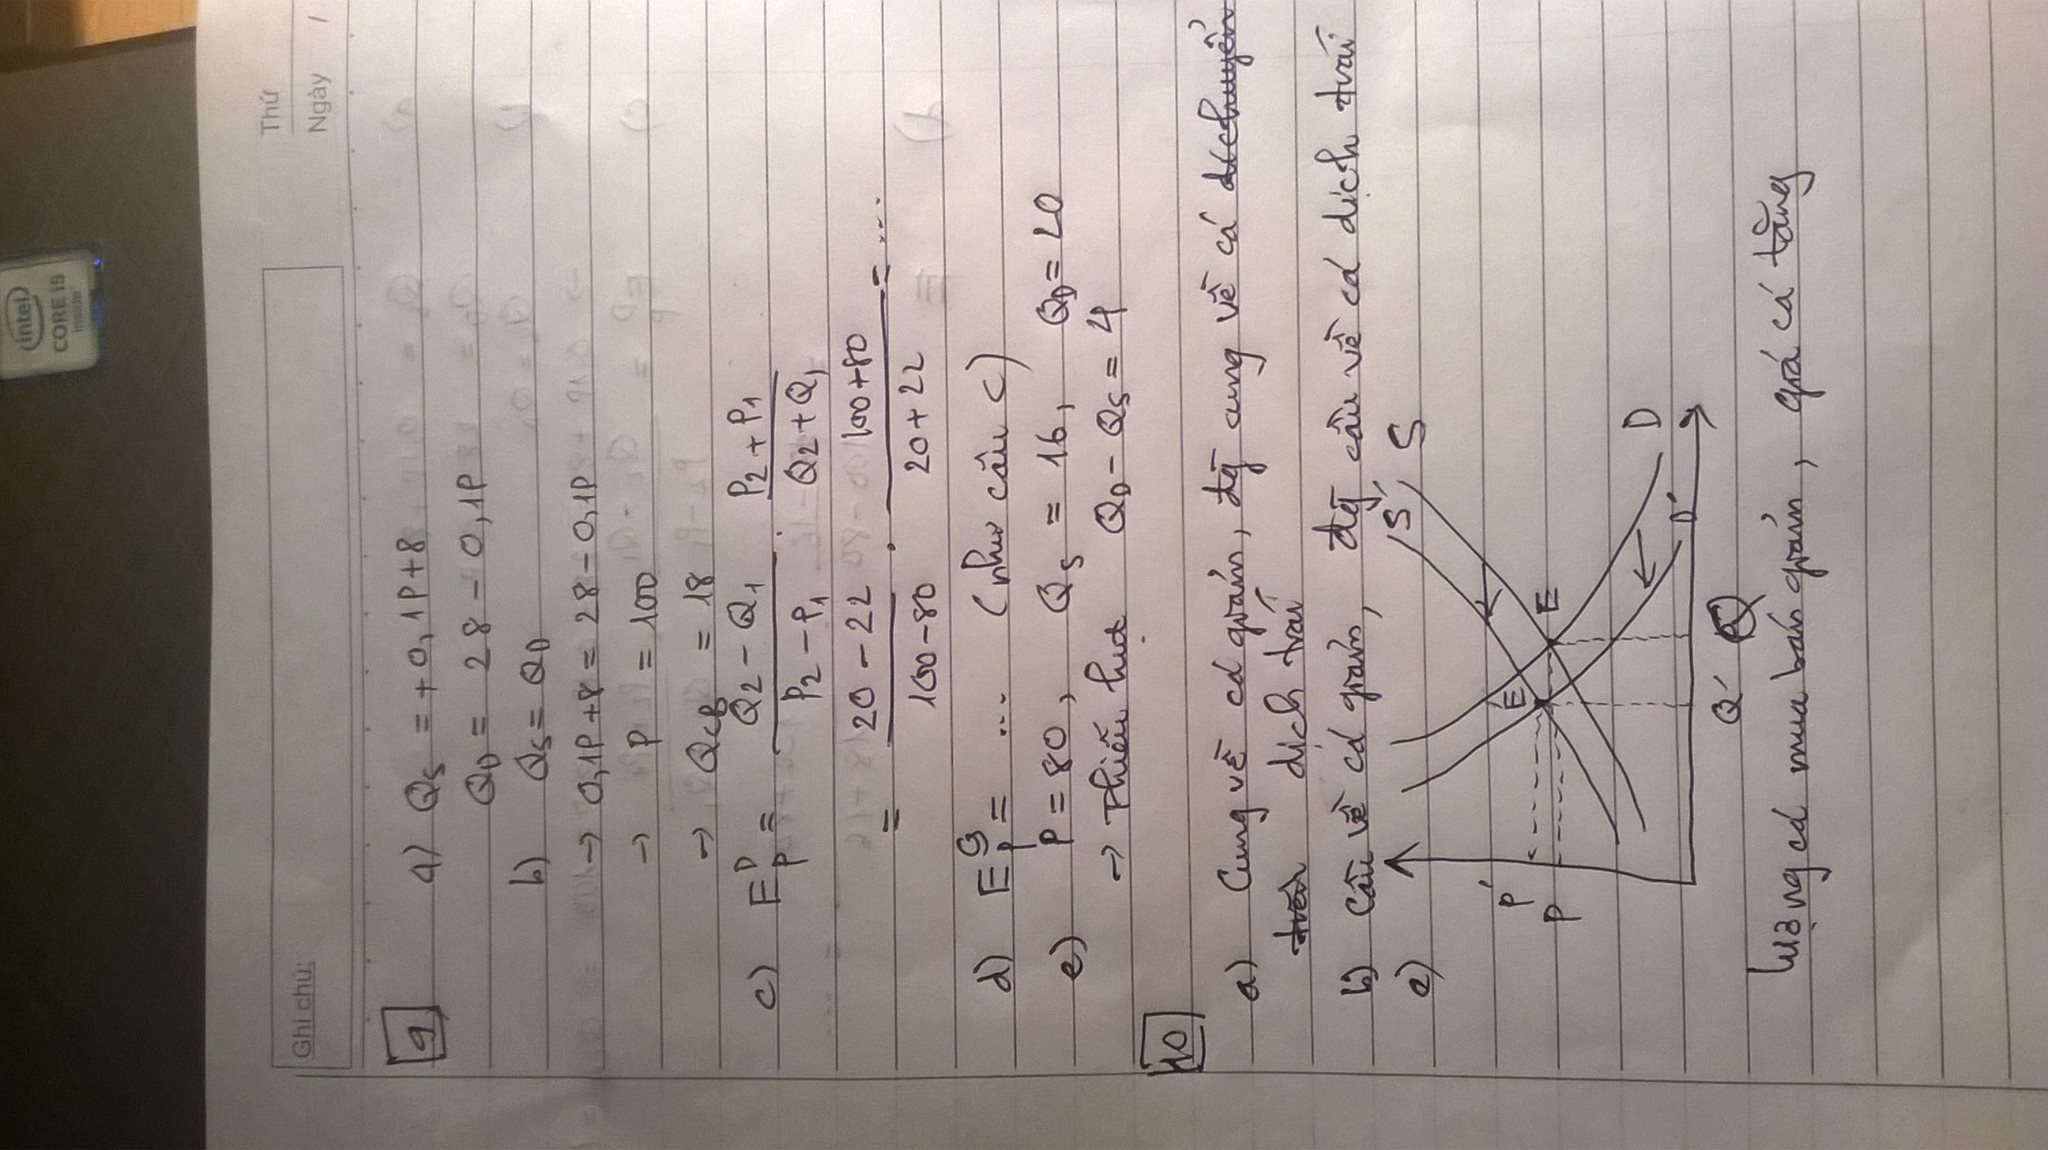 intel
CORE i5
inside
Ghi chú:
Thứ
Ngày /
9
a) Qs = +0,1P+8
QD = 28 - 0,1P
b) Qs = QD
→ 0,1P+8 = 28-0,1P
→ P = 100
→ QCB = 18
c) E^D_P = (Q2 - Q1)/(P2 - P1) . (P2 + P1)/(Q2 + Q1)
= (20 - 22)/(100-80) . (100+80)/(20+22) = ...
d) E^S_P = ... (như câu c)
e) P = 80, Qs = 16, QD = 20
→ Thiếu hụt QD - Qs = 4
10
a) Cung về cá giảm, đg cung về cá di chuyển
trên dịch trái
b) Cầu về cá giảm, đg cầu về cá dịch trái
c)
S' S
P'
E'
P
E
D
D'
Q' Q
lượng cá mua bán giảm, giá cá tăng